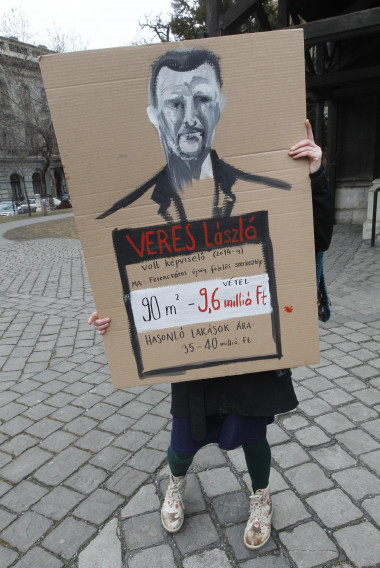 VERES László
volt képviselő (2014-ig)
MA: Ferencváros újság felelős szerkesztője
VÉTEL
90 m² - 9,6 millió Ft
HASONLÓ LAKÁSOK ÁRA:
35-40 millió Ft